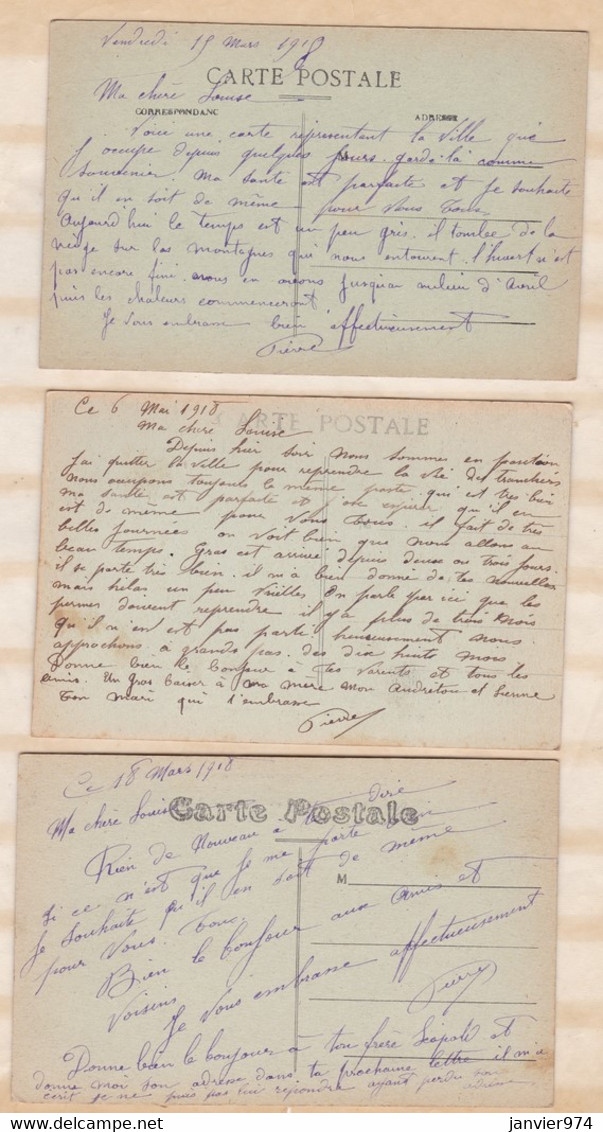 Vendredi 15 Mars 1918
CARTE POSTALE
Ma chère Louise
CORRESPONDANC
ADRESSE
Voici une carte réprésentant la Ville que
J'occupe depuis quelques jours. garde-la comme
souvenir. Ma santé est parfaite et je souhaite
qu'il en soit de même pour Vous Tous.
Aujourd'hui le temps est un peu gris. il tombe de la
neige sur las montagnes qui nous entourent. l'hivert n'est
pas encore fini. nous en avons jusqu'au milieu d'Avril
puis les chaleurs commenceront
Je Vous embrasse bien affectueusement
Pierre
Ce 6 Mai 1918
CARTE POSTALE
Ma chère Louise
Depuis hier soir nous sommes en position
J'ai quitter la Ville pour reprendre la vie des tranchers
nous occupons toujours le même poste qui est très bien
ma santé est parfaite et j'ose espérer qu'il en
est de même pour Vous Tous. il fait de très
belles journées on Voit bien que nous allons au
beau temps. Gras est arrivé depuis deux ou trois jours.
il se porte très bien. il m'a bien donné de tes nouvelles
mais hélas un peu Vieilles On parle par ici que les
permes doivent reprendre il y a plus de trois mois
qu'il n'en est pas parti heureusement nous
approchons à grands pas des dix huits mois
Donne bien le bonjour à Tes Parents et tous les
amis. Un gros baiser à ma mère mon et
Ton mari qui t'embrasse
Pierre
Ce 18 Mars 1918
Carte Postale
Ma chère Louise
Rien de Nouveau a te dire
si ce n'est que je me porte bien
Je souhaite qu'il en soit de même
M
pour Vous Tous.
Bien le bonjour aux Amis et
Voisins
Je Vous embrasse affectueusement
Pierre
Donne bien le bonjour à ton frère Léopold et
donne moi son adresse dans ta prochaine lettre il m'a
écrit je ne puis pas lui répondre ayant perdu son
adresse
https://www.delcampe.net | janvier974